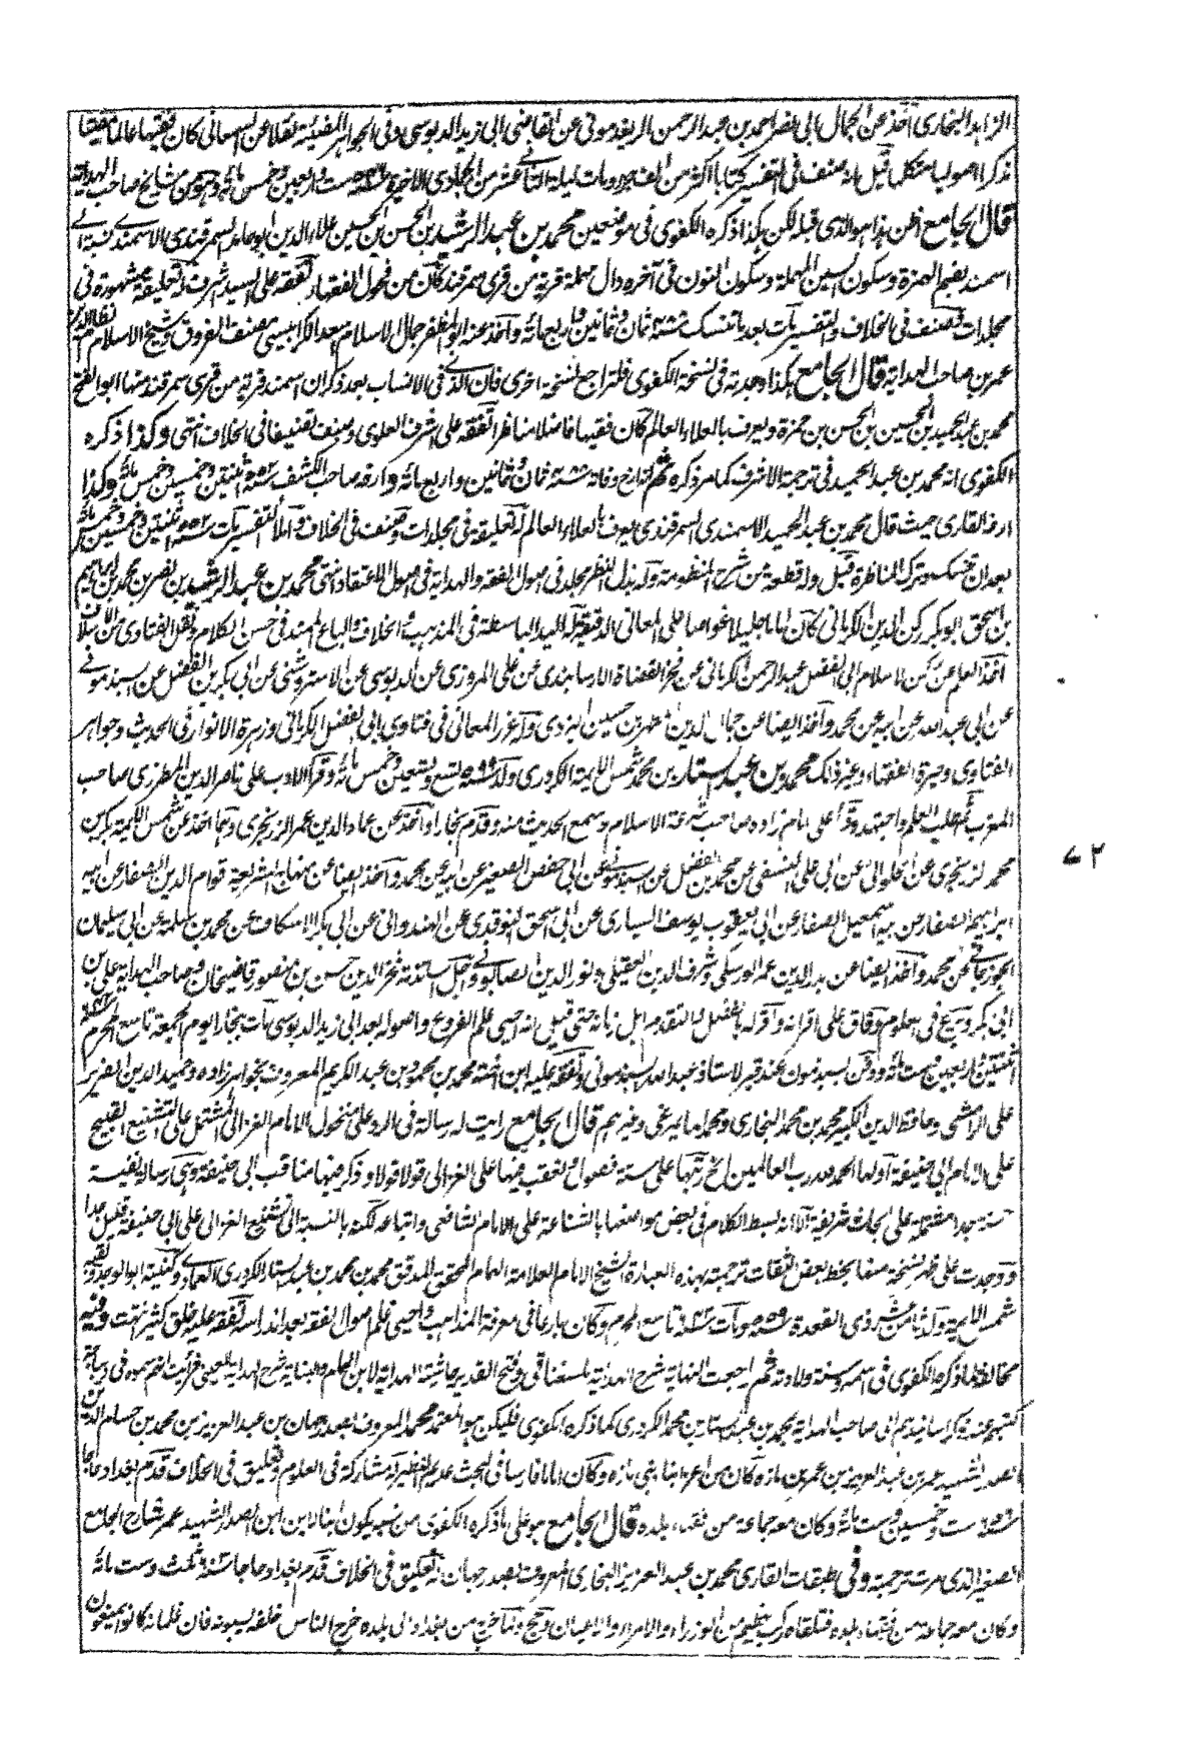 الزاهد البخارى أخذ عن الجمال ابى نصر احمد بن عبد الرحمن الريغدمونى عن القاضى ابى زيد الدبوسى وفى الجواهر المضيئة نقلا عن السمعانى كان فقيها عالما مفتيا
مذكرا اصوليا متكلما قيل انه صنف فى التفسير كتابا اكثر من الف جزء ومات ليلة الثانى عشر من الجمادى الآخرة سنة ست واربعين وخمس مائة وهو من مشايخ صاحب الهداية
قال الجامع اظن هذا هو الذى قبله لكن هكذا ذكره الكفوى فى موضعين محمد بن عبد الرشيد بن الحسن بن الحسين علاء الدين ابو حامد السمرقندى الاسمندى نسبة الى
اسمند بضم الهمزة وسكون السين المهملة وسكون النون فى آخره دال مهملة قرية من قرى سمرقند كان من فحول الفقهاء تفقه على السيد اشرف له تعليقة مشهورة فى
مجلدات وصنف فى الخلاف والتفسير مات بعد ما تنسك سنة ثمان وثمانين واربعمائة وأخذ عنه ابو المظفر جمال الاسلام اسعد الكرابيسى مصنف الفروق وشيخ الاسلام نظام الدين
عمر بن صاحب الهداية قال الجامع هكذا وجدته فى نسخة الكفوى فلتراجع نسخة اخرى فان الذى فى الانساب بعد ذكر ان اسمند قرية من قرى سمرقند منها ابو الفتح
محمد بن عبد الحميد بن الحسين بن الحسن بن حمزة ويعرف بالعلاء العالم كان فقيها فاضلا مناظرا تفقه على اشرف العلوى وصنف تصنيفا فى الخلاف انتهى وكذا ذكره
الكفوى انه محمد بن عبد الحميد فى ترجمة الاشرف كما مر ذكره ثم تاريخ وفاته سنة ثمان وثمانين واربع مائة وارخه صاحب الكشف سنة ٥٥٢ اثنتين وخمسين وخمس مائة وكذا
ارخه القارى حيث قال محمد بن عبد الحميد الاسمندى السمرقندى يعرف بالعلاء العالم له تعليقة فى مجلدات وصنف فى الخلاف وأملأ التفسير مات سنة ٥٥٢ اثنتين وخمسين وخمس مائة
بعد ان تنسك وترك المناظرة قيل وله قطعة من شرح المنظومة وله بذل النظر مجلد فى اصول الفقه والهداية فى اصول الاعتقاد انتهى محمد بن عبد الرشيد بن نصر بن محمد بن ابراهيم
بن اسحق ابو بكر ركن الدين الكرمانى كان اماما جليلا غواصا على المعانى الدقيقة له اليد الباسطة فى المذهب والخلاف والباع الممتد فى حسن الكلام ونقل الفتاوى من الآفاق
أخذ العلم عن ركن الاسلام ابى الفضل عبد الرحمن الكرمانى عن فخر القضاة الارسابندى عن على المروزى عن الدبوسى عن الاستروشنى عن ابى بكر بن الفضل عن السبذمونى
عن ابى عبد الله عن ابيه عن محمد وأخذ ايضا عن جمال الدين مطهر بن حسين اليزدى وله غرر المعانى فى فتاوى ابى الفضل الكرمانى وزهرة الانوار فى الحديث وجواهر
الفتاوى وحيرة الفقهاء وغير ذلك محمد بن عبد الستار بن محمد شمس الائمة الكردرى ولد سنة ٥٩٩ تسع وتسعين وخمس مائة وقرأ الادب على ناصر الدين المطرزى صاحب
المغرب ثم طلب العلم واجتهد وقرأ على امام زاده صاحب شرعة الاسلام وسمع الحديث منه وقدم بخارا وأخذ عن عماد الدين عمر الزرنجرى وهما اخذا عن شمس الائمة بكر بن
محمد الزرنجرى عن الحلوانى عن ابى على النسفى عن محمد بن الفضل عن السبذمونى عن ابى حفص الصغير عن ابيه عن محمد وأخذ ايضا عن منهاج الشريعة قوام الدين الصفار عن ابيه
ابراهيم الصفار عن ابيه اسمعيل الصفار عن ابى يعقوب يوسف السيارى عن ابى اسحق النوقدى عن الهندوانى عن ابى بكر الاسكاف عن محمد بن سلمة عن ابى سليمان
الجوزجانى عن محمد وأخذ ايضا عن بدر الدين عمر الورسكى وشرف الدين العقيلى ونور الدين الصابونى وأجل اساتذته فخر الدين حسن بن منصور قاضيخان وصاحب الهداية على بن
ابى بكر وبرع فى العلوم وفاق على اقرانه وأقر له بالفضل والتقدم اهل زمانه حتى قيل انه احيى علم الفروع واصوله بعد ابى زيد الدبوسى مات ببخارا يوم الجمعة تاسع المحرم سنة ٦٤٢
اثنتين واربعين وست مائة ودفن بسبذمون عند قبر الاستاذ عبد الله السبذمونى وتفقه عليه ابن اخته محمد بن محمود بن عبد الكريم المعروف بخواهرزاده وحميد الدين الضرير
على الرامشى وحافظ الدين الكبير محمد بن محمد البخارى ومحمد المايمرغى وغيرهم قال الجامع رايت له رسالة فى الرد على منخول الامام الغزالى المشتمل على التشنيع القبيح
على الامام ابى حنيفة اولها الحمد لله رب العالمين الخ رتبها على ستة فصول وتعقب فيها على الغزالى قولا قولا وذكر فيها مناقب ابى حنيفة وهى رسالة نفيسة
جدا مشتملة على ابحاث شريفة الا انه بسط الكلام فى بعض مواضعها بالشناعة على الامام الشافعى واتباعه لكنه بالنسبة الى تشنيع الغزالى على ابى حنيفة قليل جدا
ووجدت على ظهر نسخة منها بخط بعض الثقات ترجمته بهذه العبارة الشيخ الامام العلامة الهمام المحقق المدقق محمد بن محمد بن عبد الستار الكردرى العمادى وكنيته ابو الوجد ولقبه
شمس الائمة ولد ثامن عشر ذى القعدة سنة ٥٥٩ ومات سنة ٦٤٢ تاسع المحرم وكان بارعا فى معرفة المذاهب واحيى علم اصول الفقه بعد اندراسه تفقه عليه خلق كثير انتهت وفيه
مخالفة لما ذكره الكفوى فى اسمه وسنة ولادته ثم راجعت النهاية شرح الهداية للسغناقى وفتح القدير حاشية الهداية لابن الهمام والبناية شرح الهداية للعينى فرأيت انهم سموه فى ديباجة
كتبهم عند ذكر اسانيدهم الى صاحب الهداية بمحمد بن عبد الستار بن محمد الكردرى كما ذكره الكفوى فليكن هو المعتمد محمد المعروف بصدر جهان بن عبد العزيز بن محمد بن حسام الدين
الصدر الشهيد عمر بن عبد العزيز بن عمر بن مازه كان من اعز ابناء بنى مازه وكان اماما فارسا فى البحث عديم النظير له مشاركة فى العلوم وتعليق فى الخلاف قدم بغداد حاجا
سنة ٦٥٦ ست وخمسين وست مائة وكان معه جماعة من فقهاء بلده قال الجامع هو على ما ذكره الكفوى من نسبه يكون ابنا لابن ابن الصدر الشهيد عمر شارح الجامع
الصغير الذى مرت ترجمته وفى طبقات القارى محمد بن عبد العزيز البخارى المعروف بصدر جهان له تعليق فى الخلاف قدم بغداد حاجا سنة ثلث وست مائة
وكان معه جماعة من فقهاء بلده فتلقاه ركب عظيم من الوزراء والامراء والاعيان وحج ولما خرج من بغداد الى بلده خرج الناس خلفه يسبونه فان غلمانه كانوا يمنعون
٧٢